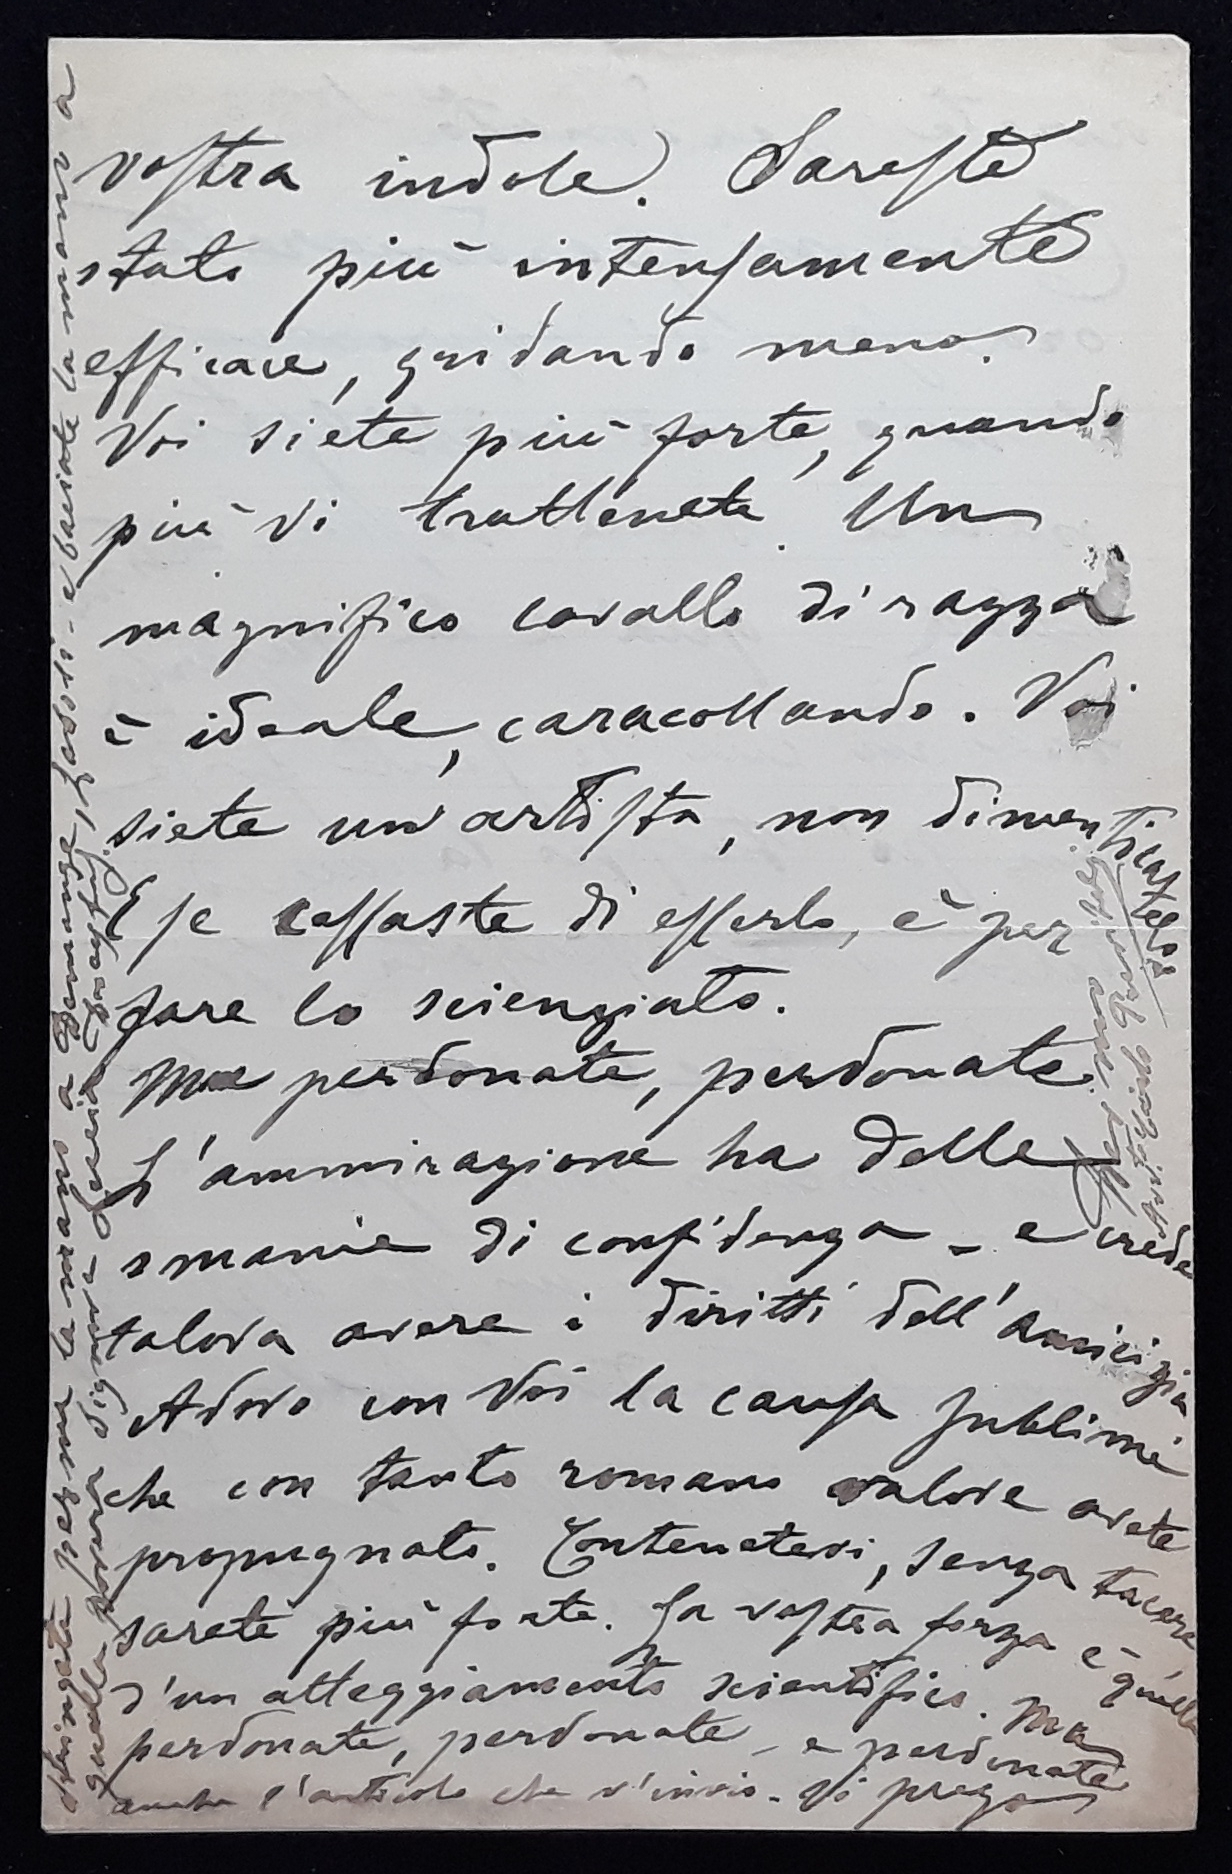 vostra indole. Sareste
stato più intensamente
efficace, gridando meno.
Voi siete più forte, quando
più vi trattenete. Un
magnifico cavallo di razza
è ideale, caracollando. Voi
siete un artista, non dimenticatelo!
E se cessaste di esserlo, è per
fare lo scienziato.
Ma perdonate, perdonate.
L'ammirazione ha delle
smanie di confidenza – e crede
talora avere i diritti dell'amicizia
Adoro con Voi la causa sublime
che con tanto romano valore avete
propugnato. Contenetevi, senza tacere
sarete più forte. La vostra forza è quella
d'un atteggiamento scientifico. Ma
perdonate, perdonate – e perdonate
anche l'articolo che v'invio. Vi prego
stringete per me la mano a Demange, – e baciate la mano a
quella povera signora